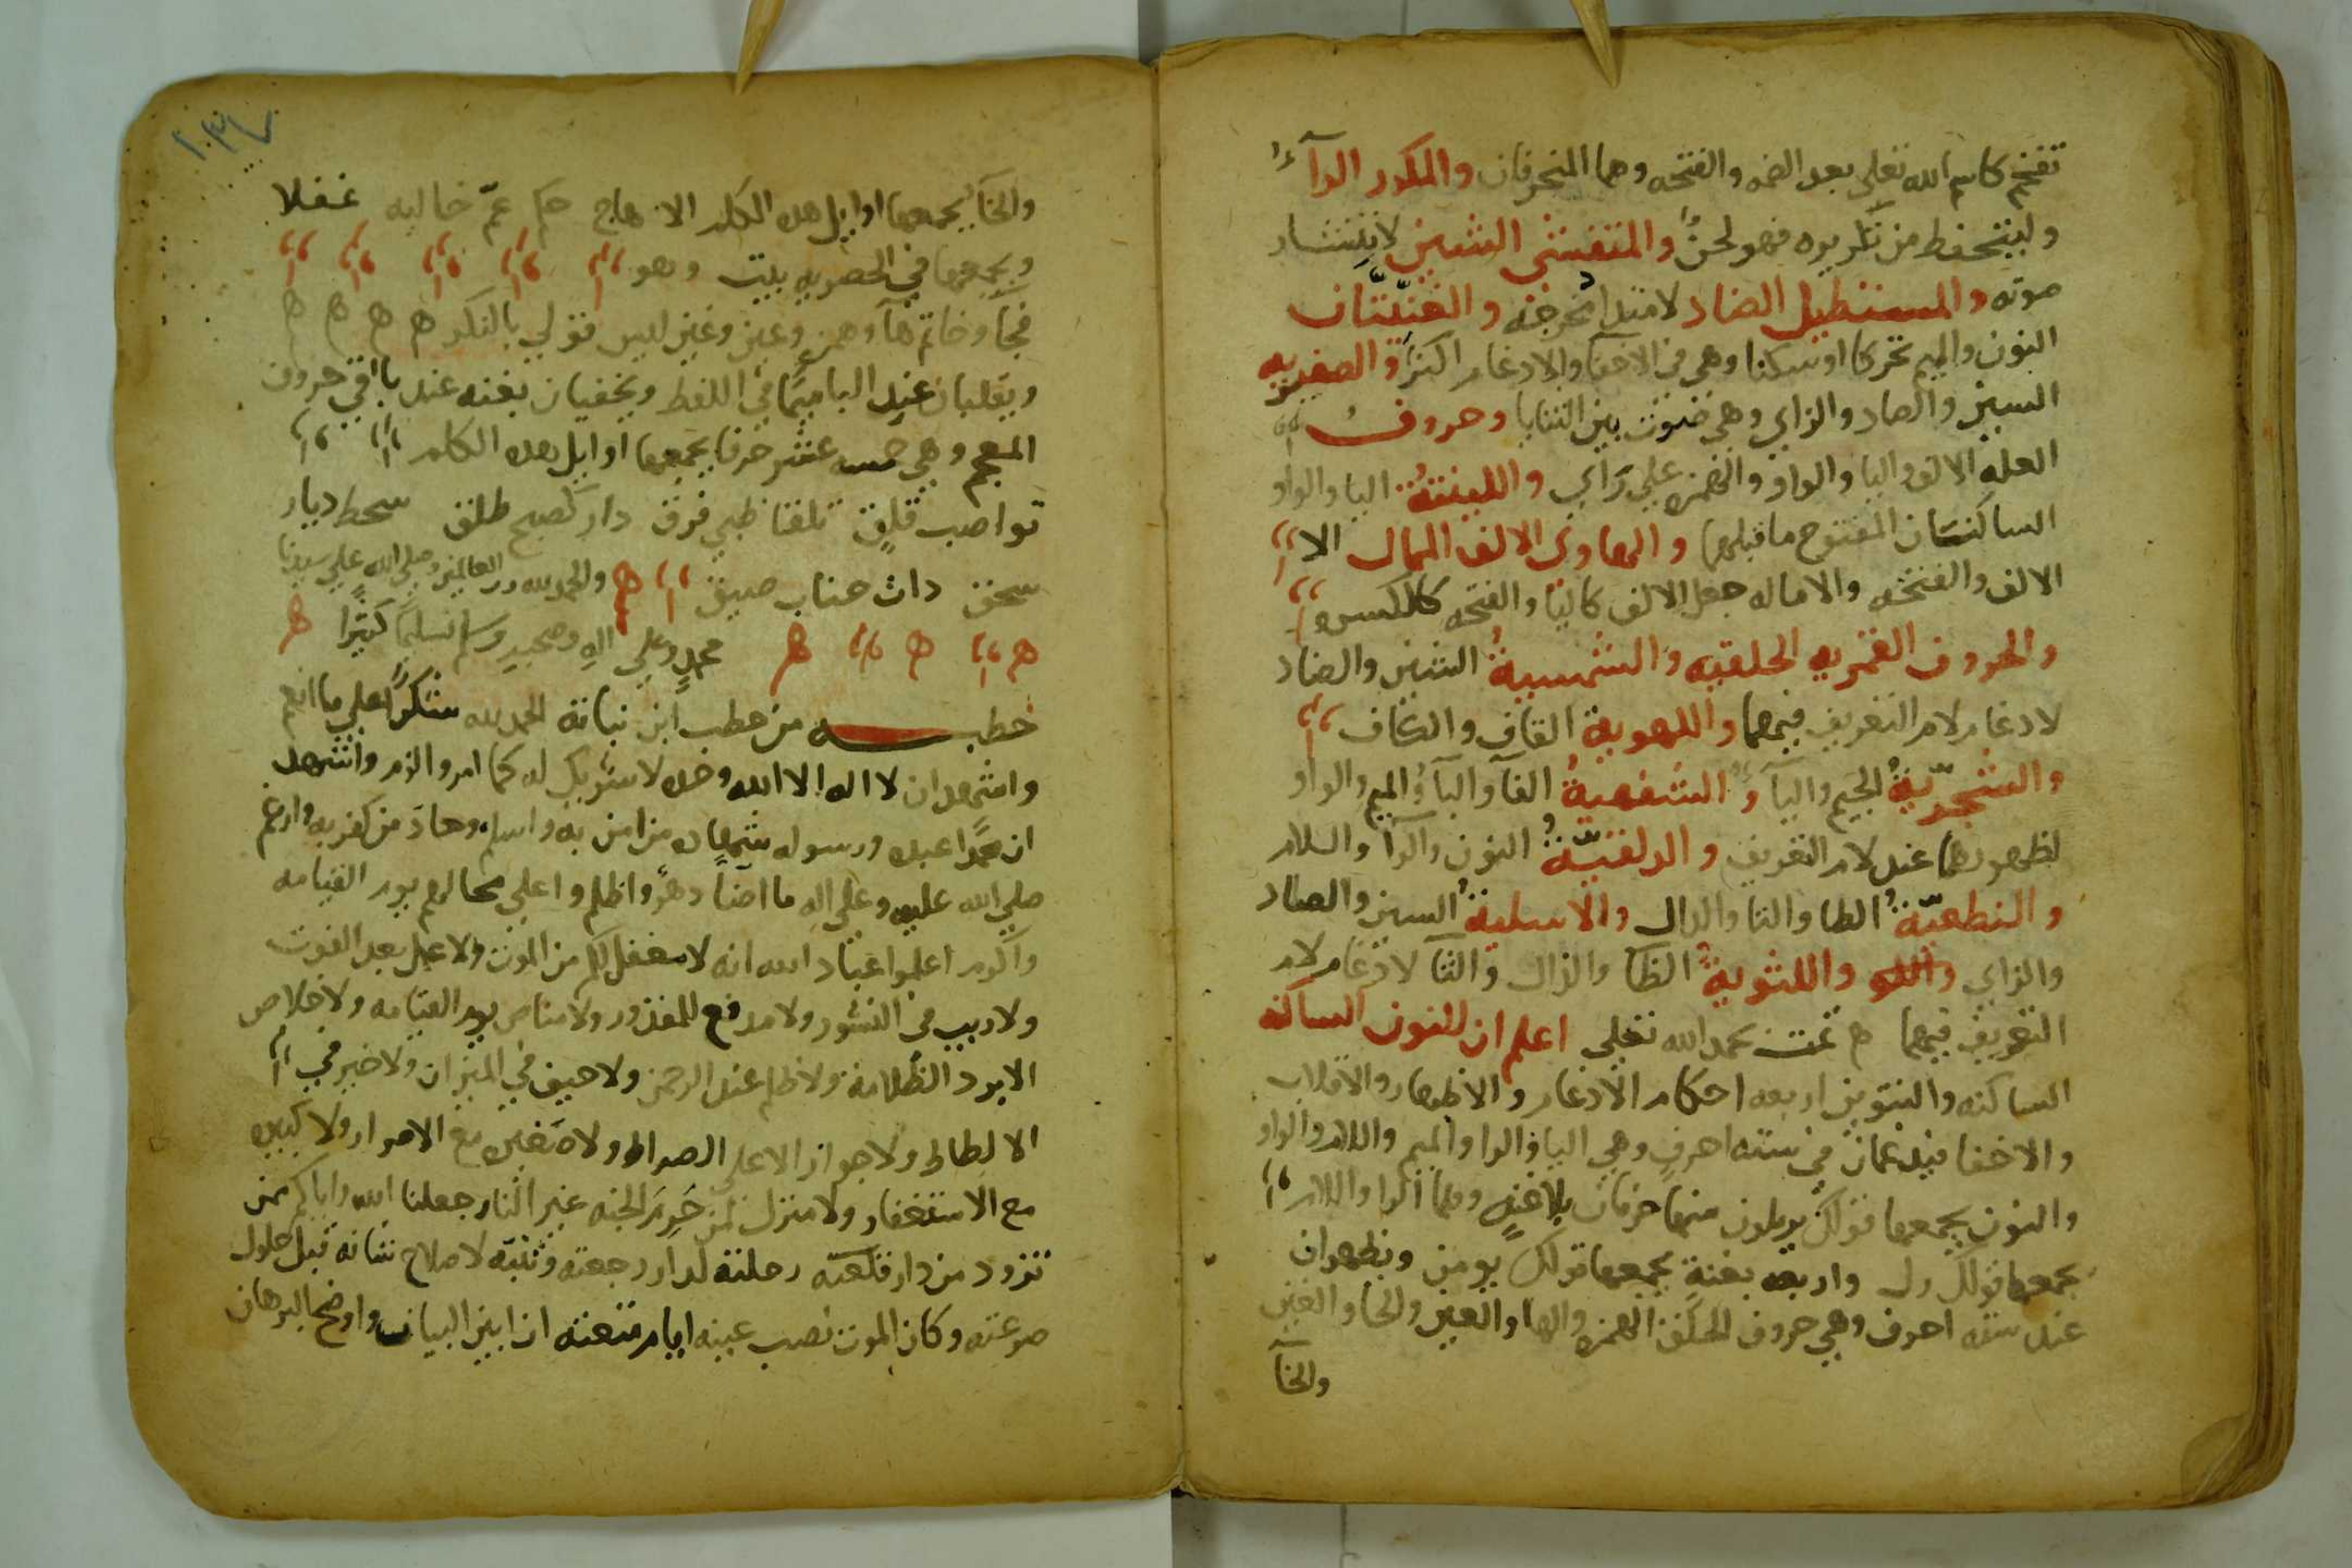 تفخم كاسم الله تعلى بعد الضمه والفتحه وهما المنحرفان والمكرر الرآء
وليتحفظ من تكريره فهو لحن والمتفشى الشين لانتشار
صوته والمستطيل الضاد لامتداد مخرجه والغنيتان
النون والميم تحركا او سكنا وهي في الاخفا والادغام اكثر والصفيريه
السين والصاد والزاي وهي صوت بين الثنايا وحروف
العله الالف واليا والواو والهمزه علي راي واللينتة اليا والواو
الساكنتان المفتوح ما قبلهما والهاوى الالف الممال الا
الالف والفتحه والاماله جعل الالف كاليا والفتحه كالكسره
والحروف القمريه الحلقيه والشمسية الشين والضاد
لادغام لام التعريف فيهما واللهوية القاف والكاف
والشجرية الجيم واليآء والشفهية الفآ والبآ والميم والواو
لظهورهما عند لام التعريف والدلقية النون والرآ واللام
والنطعية الطا والتا والدال والاسلية السين والصاد
والزاي واللثوية الظآ والذال والثآ لادغام لام
التعريف فيهما ه تمت بحمد الله تعلى اعلم ان للنون الساكنه
الساكنه والتنوين اربعه احكام الادغام والاظهار والاقلاب
والاخفا فيدغمان في سته احرف وهي اليا والرا والميم واللام والواو
والنون يجمعها قولك يرملون منها حرفان بلا غنه وهما الرا واللام
يجمعها قولك رل واربعه بغنة يجمعها قولك يومن ويظهران
عند سته احرف وهي حروف الحلق الهمزه والها والعين والحا والغين
والخآ
والخآ يجمعها اوايل هده الكلم الا هاج حكم عم خاليه غفلا
ويجمعها في الحصريه بيت وهو
فحآ وخا ثم هآ وهمز وعين وغين ليس قولي بالنكر ه ه ه ه
ويقلبان عند البا ميما في اللفظ ويخفيان بغنه عند باقي حروف
المعجم وهي خمسه عشر حرفا يجمعها اوايل هده الكلم
تواصب قلق تلقا ظبي فرق دار كصبح طلق سحط ديار
سحق دات جناب صيق ه والحمد لله رب العالمين وصلى الله علي سيدنا
محمد وعلي اله وصحبه وسلم تسليما كثيرا ه
خطبـــه من خطب ابن نباتة الحمد لله شكرا علي ما انعم
واشهد ان لا اله الا الله وحده لا شريك له كما امر والزم واشهد
ان محمدا عبده ورسوله شهاده من امن به واسلم وحاد من كفر به وارغم
صلي الله عليه وعلي اله ما اضآ دهر واظلم واعلي محالهم يوم القيامه
واكرم اعلموا عباد الله انه لا معقل لكم من الموت ولا عمل بعد الفوت
ولا ريب في النشور ولا مدفع للمقدور ولا مناص يوم القيامه ولا خلاص
الا برد الظلامة ولا ظلم عند الرحمن ولا حيف في الميزان ولا خبر في
الا لطاط ولا جواز الا علي الصراط ولا صغيره مع الاصرار ولا كبيره
مع الاستغفار ولا منزل لمن حرم الجنه غير النار جعلنا الله واياكم ممن
تزود من دار قلعته رحلته لدار رجعته وتنبه لاصلاح شانه قبل حلول
صرعته وكان الموت نصب عينه ايام متعته ان ابين البيان واوضح البرهان